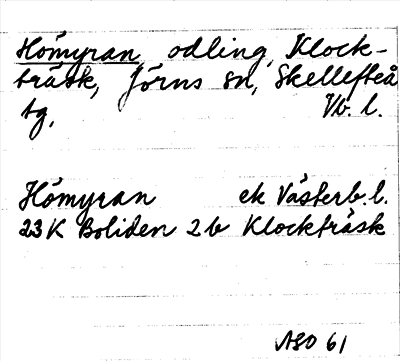 Hömyran, odling, Klock-
träsk, Jörns sn, Skellefteå
tg, Vb. l.
Hömyran ek Västerb. l.
23K Boliden 2b Klockträsk
ASO 61